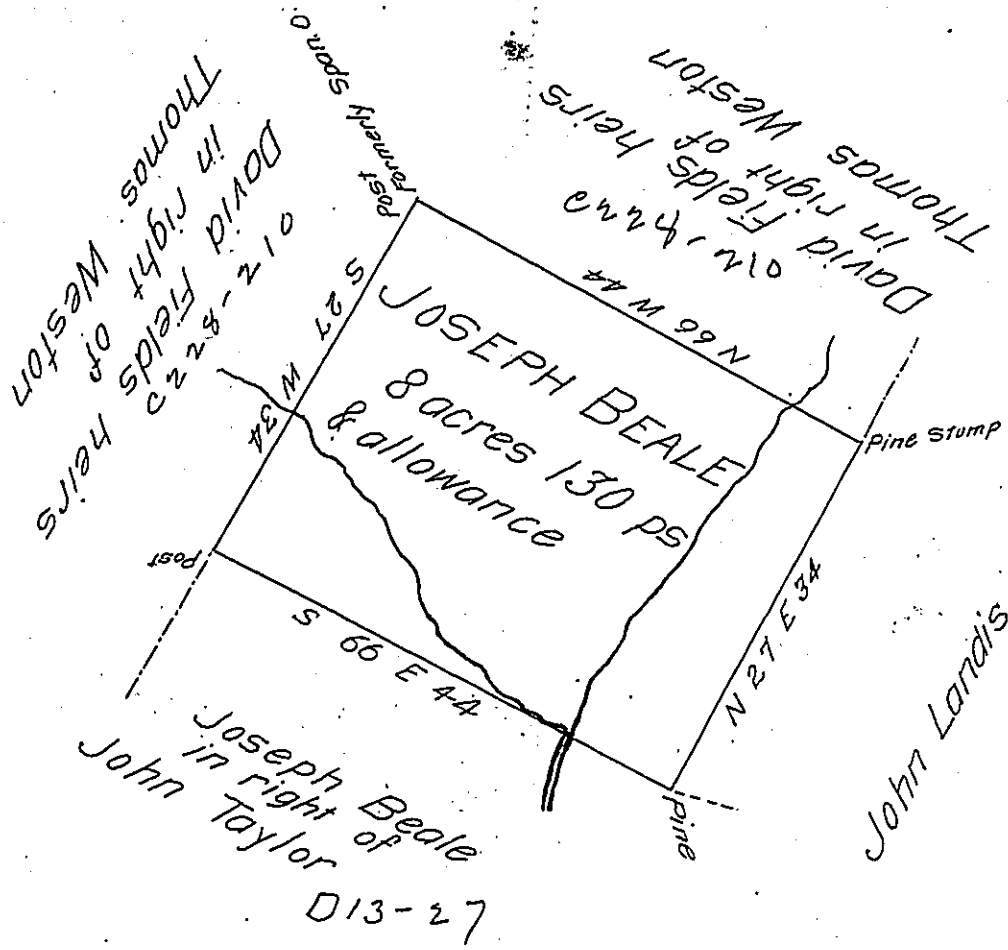 Thomas Weston
in right of
David Fields heirs
Formerly Span.O
Post
David Fields heirs
in right of
Thomas Weston
S 27 W 34
N 66 W 44
JOSEPH BEALE
8 acres 130 ps
& allowance
Pine Stump
Post
S 66 E 44
N 27 E 34
Pine
John Landis
Joseph Beale
in right of
John Taylor
D13-27